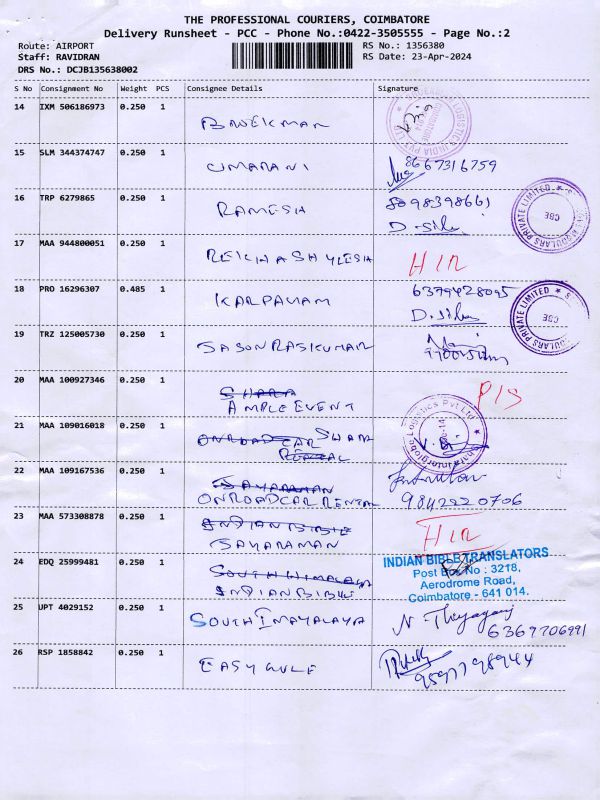 THE PROFESSIONAL COURIERS, COIMBATORE
Delivery Runsheet - PCC - Phone No.:0422-3505555 - Page No.:2
Route: AIRPORT RS No.: 1356380
Staff: RAVIDRAN RS Date: 23-Apr-2024
DRS No.: DCJB135638002
S No Consignment No Weight PCS Consignee Details Signature
14 IXM 506186973 0.250 1
15 SLM 344374747 0.250 1 UMARANI 8667316759
16 TRP 6279865 0.250 1 RAMESH 8098398661
PRIVATE LIMITED
CBE
17 MAA 944800051 0.250 1
18 PRO 16296307 0.485 1 KARPAVAM 6379428095
PRIVATE LIMITED
CBE
19 TRZ 125005730 0.250 1
20 MAA 100927346 0.250 1 SHARA
AMPLE EVENT
21 MAA 109016018 0.250 1 ONROADCAR
RENTAL
Interglobe Logistics Pvt Ltd
22 MAA 109167536 0.250 1 SAYARAMAN
ONROADCAR RENTAL 9842220706
23 MAA 573308878 0.250 1 INDIAN BIBLE
SAYARAMAN
24 EDQ 25999481 0.250 1 SOUTH HIMALAYA
INDIAN BIBLE
INDIAN BIBLE TRANSLATORS
Post Box No : 3218,
Aerodrome Road,
Coimbatore - 641 014.
25 UPT 4029152 0.250 1 N Thyagaraj
6369706991
26 RSP 1858842 0.250 1 EASY GULF
9597798944